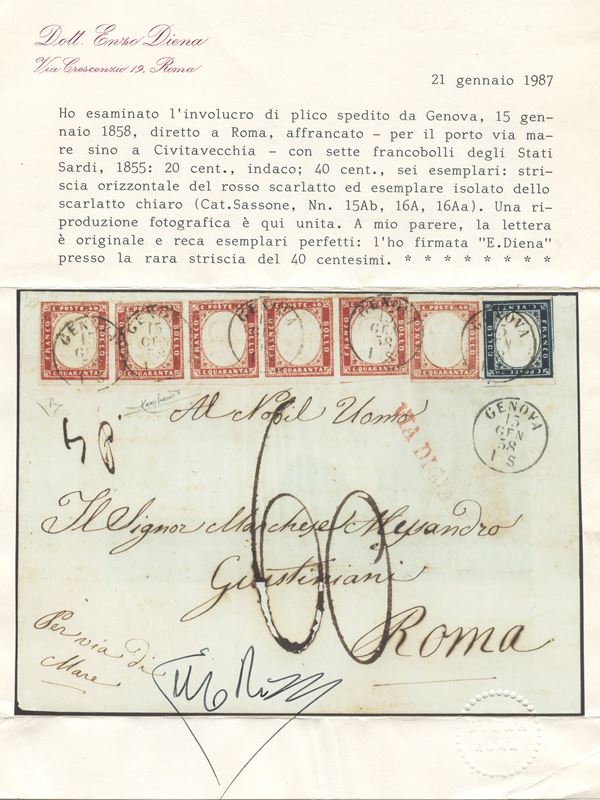 Dott. Enzo Diena
Via Crescenzio 19, Roma
21 gennaio 1987
Ho esaminato l'involucro di plico spedito da Genova, 15 gen-
naio 1858, diretto a Roma, affrancato - per il porto via ma-
re sino a Civitavecchia - con sette francobolli degli Stati
Sardi, 1855: 20 cent., indaco; 40 cent., sei esemplari: stri-
scia orizzontale del rosso scarlatto ed esemplare isolato dello
scarlatto chiaro (Cat.Sassone, Nn. 15Ab, 16A, 16Aa). Una ri-
produzione fotografica è qui unita. A mio parere, la lettera
è originale e reca esemplari perfetti: l'ho firmata "E.Diena"
presso la rara striscia del 40 centesimi. * * * * * * * *
C. POSTE 40 FRANCO BOLLO C. QUARANTA
C. POSTE 40 FRANCO BOLLO C. QUARANTA
C. POSTE 40 FRANCO BOLLO C. QUARANTA
C. POSTE 40 FRANCO BOLLO C. QUARANTA
C. POSTE 40 FRANCO BOLLO C. QUARANTA
C. POSTE 40 FRANCO BOLLO C. QUARANTA
FRANCO BOLLO
GENOVA 15 GEN 58 1 S
Al Nobil Uomo
VIA DI
Il Signor Marchese Alessandro
Giustiniani
60
Roma
Per via di
Mare
DIENA
ROMA